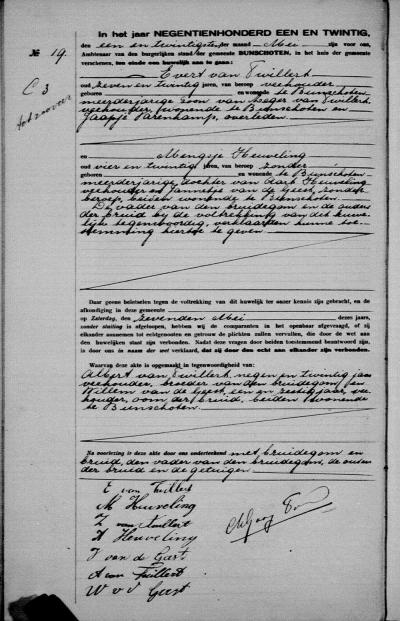 № 19.
In het jaar NEGENTIENHONDERD EEN EN TWINTIG,
den een en twintigsten der maand Mei zijn voor ons,
Ambtenaar van den burgerlijken stand der gemeente BUNSCHOTEN, in het huis der gemeente
verschenen, ten einde een huwelijk aan te gaan:
Evert van Twillert
oud zeven en twintig jaren, van beroep veehouder
geboren en wonende te Bunschoten
meerderjarige zoon van van Twillert,
veehouder, wonende te Bunschoten en
overleden.
en Mengsje Heuveling
oud vier en twintig jaren, van beroep zonder
geboren en wonende te Bunschoten
meerderjarige dochter van Heuveling
veehouder en van de Geest, zonder
beroep, beiden wonende te Bunschoten.
De vader van den bruidegom en de ouders
der bruid bij de voltrekking van dit huwe-
lijk tegenwoordig, verklaarden hunne toe-
stemming hiertoe te geven
Daar geene beletselen tegen de voltrekking van dit huwelijk ter onzer kennis zijn gebracht, en de
afkondiging in deze gemeente
op Zaterdag, den zevenden Mei dezes jaars,
zonder stuiting is afgeloopen, hebben wij de comparanten in het openbaar afgevraagd, of zij
elkander aannemen tot echtgenooten en getrouw de plichten zullen vervullen, die door de wet aan
den huwelijken staat zijn verbonden. Nadat deze vragen door beiden toestemmend beantwoord zijn,
is door ons in naam der wet verklaard, dat zij door den echt aan elkander zijn verbonden.
Waarvan deze akte is opgemaakt in tegenwoordigheid van:
Albert van Twillert, negen en twintig jaar
veehouder, broeder van den bruidegom, en
Willem van de Geest, een en zestig jaar, vee-
houder, oom der bruid, beiden wonende
te Bunschoten.
Na voorlezing is deze akte door ons onderteekend met bruidegom en
bruid, den vader van den bruidegom, de ouders
der bruid en de getuigen.
E van Twillert
M Heuveling
Z van Twillert
H Heuveling
J van de Geest
A van Twillert
W v d Geest